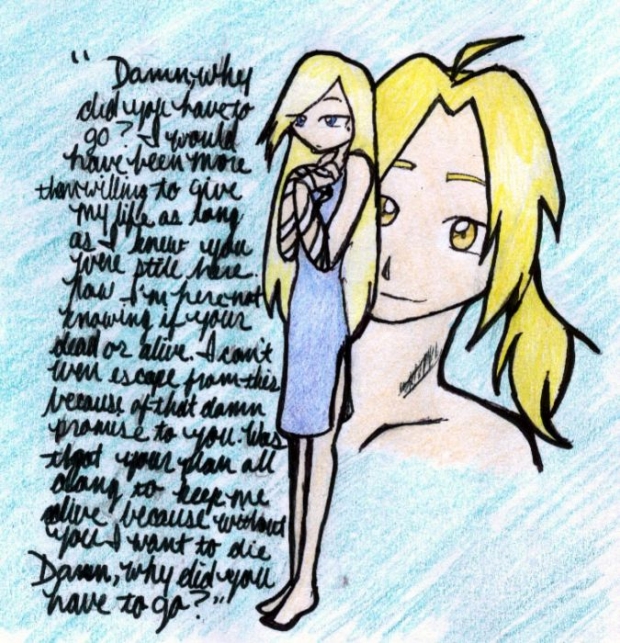 "Damn, why
did you have to
go? I would
have been more
than willing to give
my life as long
as I knew you
were still here.
Now I'm here not
knowing if your
dead or alive. I can't
even escape from this
because of that damn
promise to you. Was
that your plan all
along to keep me
alive because without
you I want to die
Damn, why did you
have to go?"